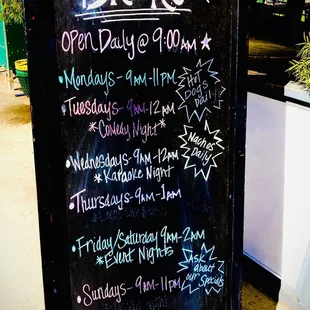 Open Daily @ 9:00am
Mondays - 9am-11pm
Hot
Dogs
Daily
Tuesdays - 9am-12am
*Comedy Night*
Nachos
Daily
Wednesdays - 9am-12am
*Karaoke Night
Thursdays - 9am-1am
Friday/Saturday 9am-2am
*Event Nights*
Ask
about
our
Specials
Sundays - 9am-11pm